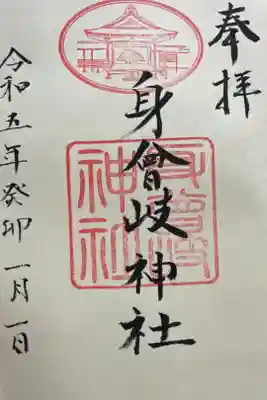 奉拝
身曾岐神社
身曾岐
神社
令和五年癸卯一月一日